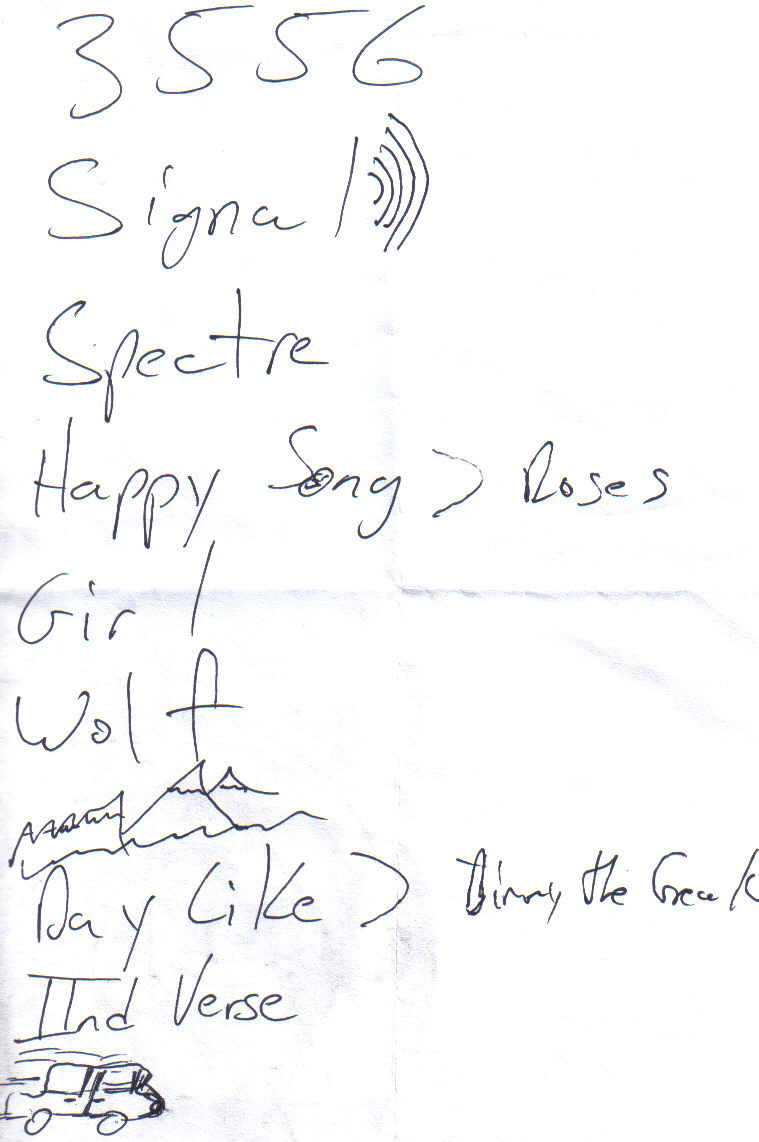 3556
Signal
Spectre
Happy Song > Roses
Girl
Wolf
Day Like > the Greak
IInd Verse